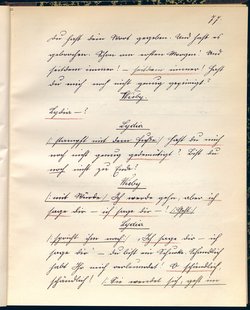 77
Du hast dein Wort gegeben. Und hast es
gebrochen. Schon am ersten Morgen! Und
seitdem immer! — seitdem immer! Hast
du mich noch nicht genug gepeinigt?
Lydia —!
Lydia
(stampft mit dem Fuße) Hast du mich
noch nicht genug gedemütigt? Bist du
noch nicht zu Ende?
(mit Würde) Ich werde gehn, aber ich
sage dir — ich sage dir —! (Geht)
Lydia
(spricht ihm nach) „Ich sage dir — ich
sage dir — du bist ein Schurke. Schändlich
habt Ihr mich verleumdet! O schändlich
schändlich! (Sie wendet sich, geht